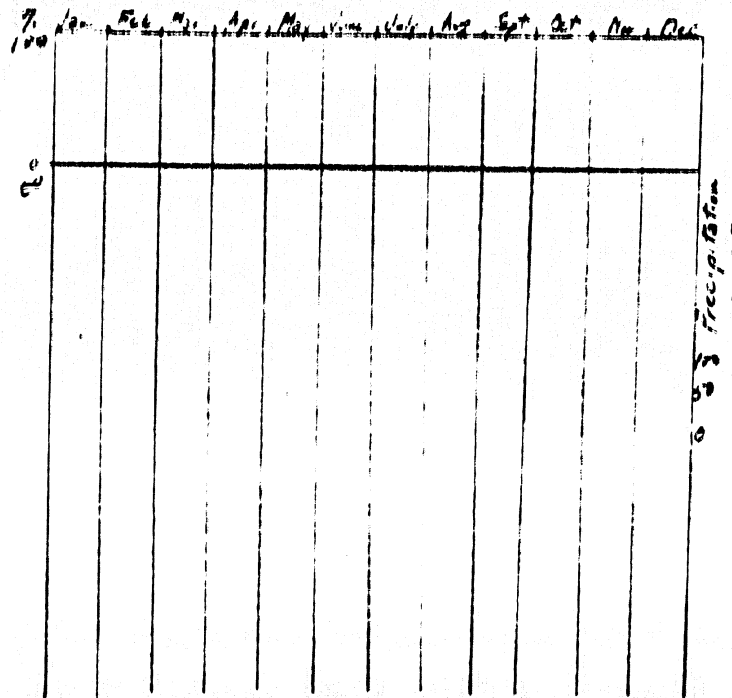 %
100 Jan Feb Mar Apr May June July Aug Sept Oct Nov Dec
0
Precipitation
100
50
0